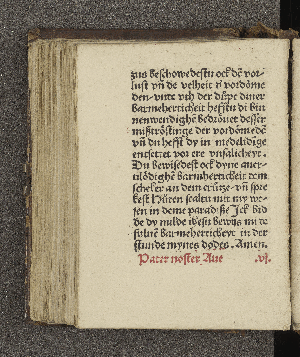 zus beschowedestu ock de vor-
lust vñ de velheit d' vordome
den. vnde vth der dupe diner
barmeherticheit hefftu di bin
nenwendighe bedrouet desser
mistrostinge der vordomedē
vñ du hefft dy in medelidige
entsettet vor ere vnsalicheyt.
Du bewisedest ock dyne auer-
vlodighē barmherticheit dem
scheker an dem crutze. vñ spre
kest Huten schaltu mit my we-
sen in deme paradise Ick bid
de dy milde ihesu bewys my de
sulue barmeherticheyt in der
stunde mynes dodes. Amen.
Pater noster Aue .vj.